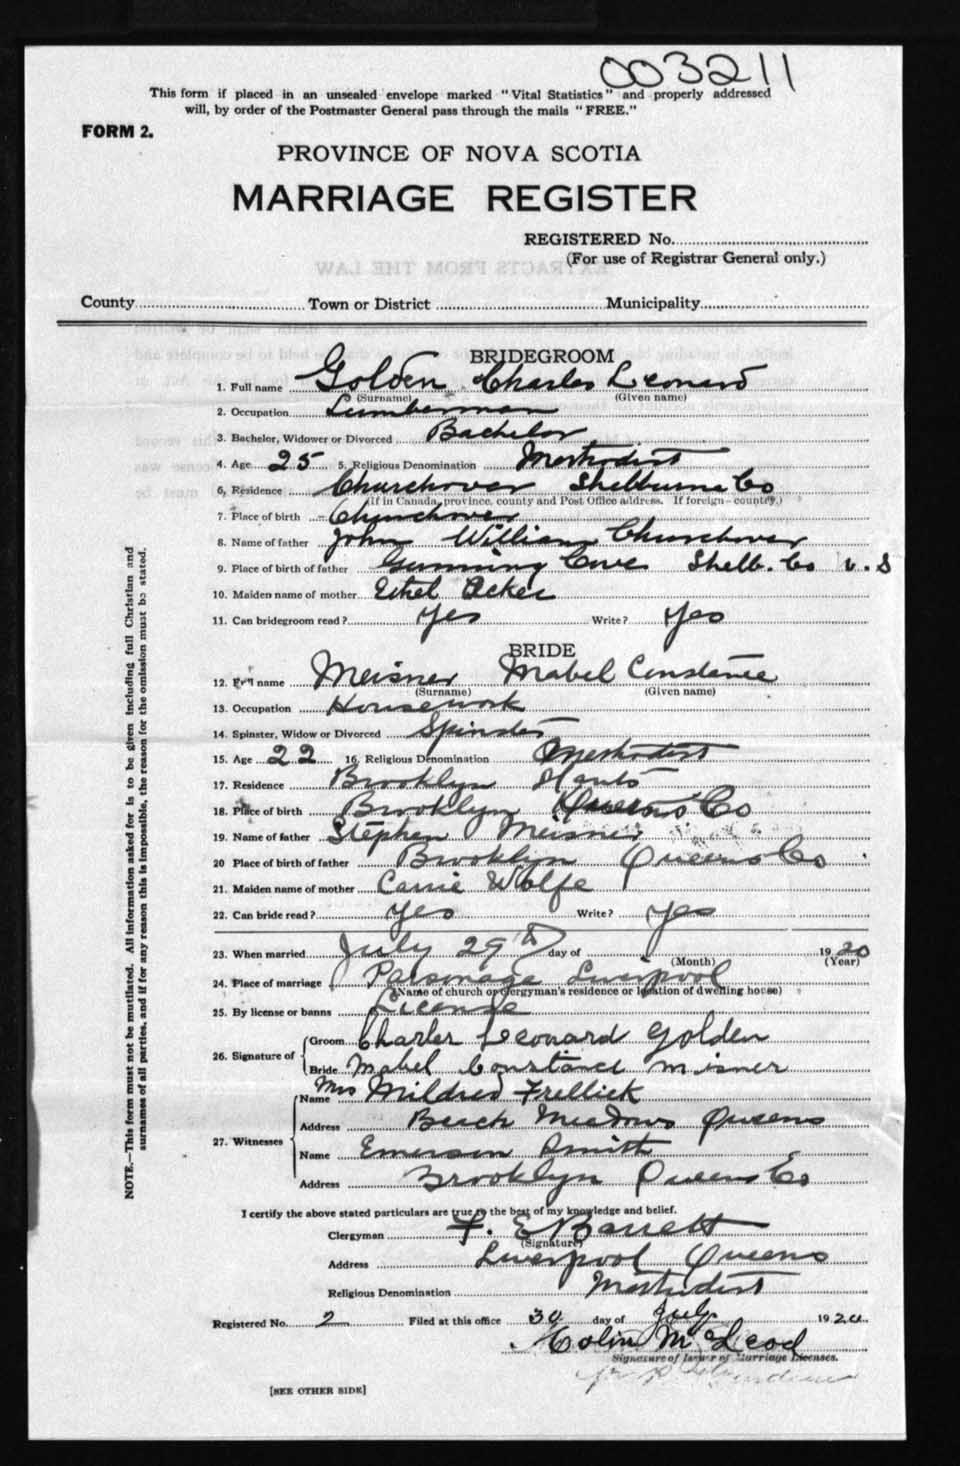 003211
This form if placed in an unsealed envelope marked "Vital Statistics" and properly addressed
will, by order of the Postmaster General pass through the mails "FREE."
FORM 2.
PROVINCE OF NOVA SCOTIA
MARRIAGE REGISTER
REGISTERED No.
(For use of Registrar General only.)
EXTRACTS FROM THE LAW
County Town or District Municipality
BRIDEGROOM
1. Full name Golden Charles Leonard
(Surname) (Given name)
2. Occupation Lumberman
3. Bachelor, Widower or Divorced Bachelor
4. Age 25 5. Religious Denomination Methodist
6. Residence Churchover Shelburne Co
(if in Canada, province, county and Post Office address. If foreign—country.)
7. Place of birth Churchover
8. Name of father John William Churchover
9. Place of birth of father Gunning Cove Shelb. Co N.S
10. Maiden name of mother Ethel Acker
11. Can bridegroom read? Yes Write? Yes
BRIDE
12. Full name Meisner Mabel Constance
(Surname) (Given name)
13. Occupation Housework
14. Spinster, Widow or Divorced Spinster
15. Age 22 16. Religious Denomination Methodist
17. Residence Brooklyn Hants
18. Place of birth Brooklyn Queens Co
19. Name of father Stephen Meisner
20 Place of birth of father Brooklyn Queens Co
21. Maiden name of mother Carrie Wolfe
22. Can bride read? Yes Write? Yes
23. When married July 29th day of 1920
(Month) (Year)
24. Place of marriage Parsonage Liverpool
(Name of church or Clergyman's residence or location of dwelling house)
25. By license or banns License
26. Signature of Groom Charles Leonard Golden
Bride Mabel Constance Misner
27. Witnesses Name Mrs Mildred Frellick
Address Beach Meadows Queens
Name Emerson Smith
Address Brooklyn Queens Co
NOTE.—This form must not be mutilated. All information asked for is to be given including full Christian and
surnames of all parties, and if for any reason this is impossible, the reason for the omission must be stated.
I certify the above stated particulars are true to the best of my knowledge and belief.
Clergyman F. E Barrett
(Signature)
Address Liverpool Queens
Religious Denomination Methodist
Registered No. 2 Filed at this office 30 day of July 1920
Colin McLeod
Signature of Issuer of Marriage Licenses.
[SEE OTHER SIDE]